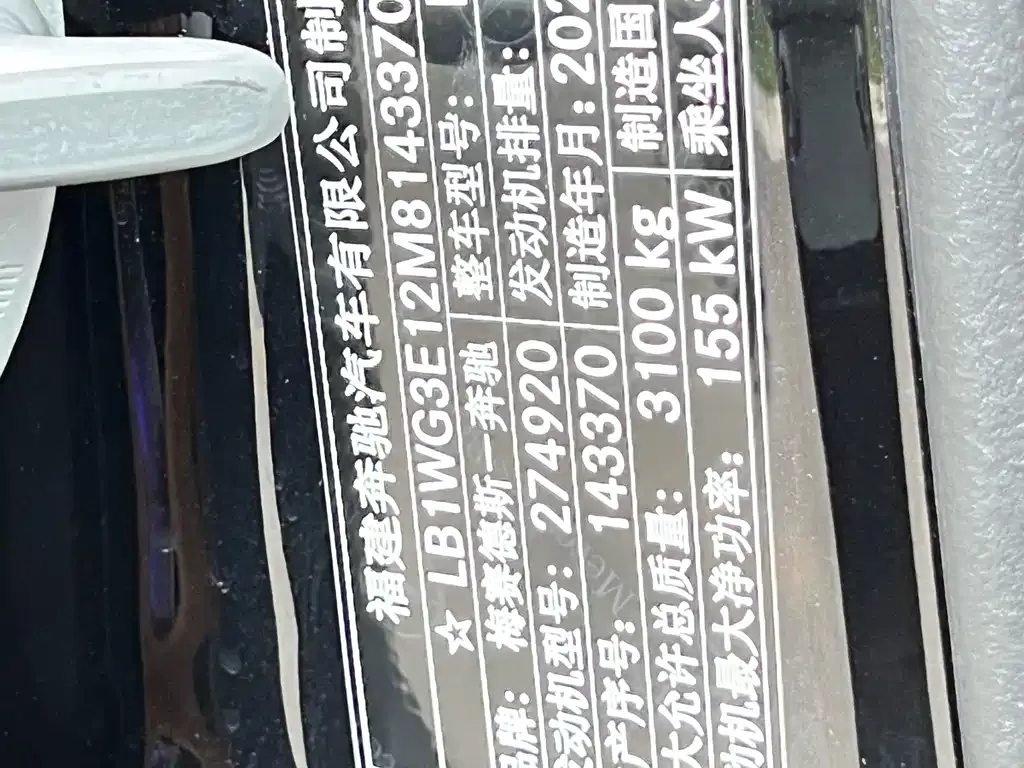 福建奔驰汽车有限公司制
☆LB1WG3E12M8143370
品牌: 梅赛德斯一奔驰 整车型号:
发动机型号: 274920 发动机排量:
产序号: 143370 制造年月: 202
大允许总质量: 3100 kg 制造国
动机最大净功率: 155 kW 乘坐人